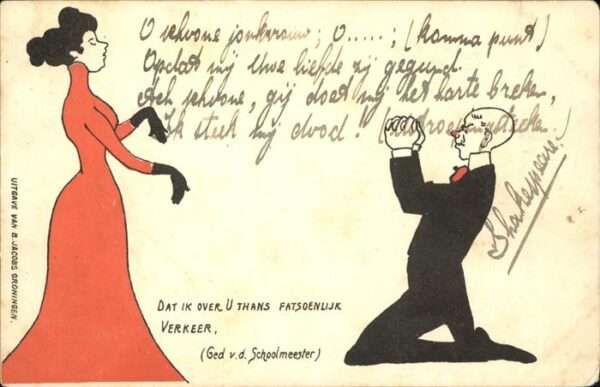 O schoone jonkvrouw; O.....; (komma punt)
Opdat mij Uwe liefde zij gegund.
Ach schoone, gij doet mij het harte breken,
Ik steek mij dood! (uitroepingsteeken.)
Shakespeare.
DAT IK OVER U THANS FATSOENLIJK
VERKEER,
(Ged v.d. Schoolmeester)
UITGAVE VAN B. JACOBS GRONINGEN.